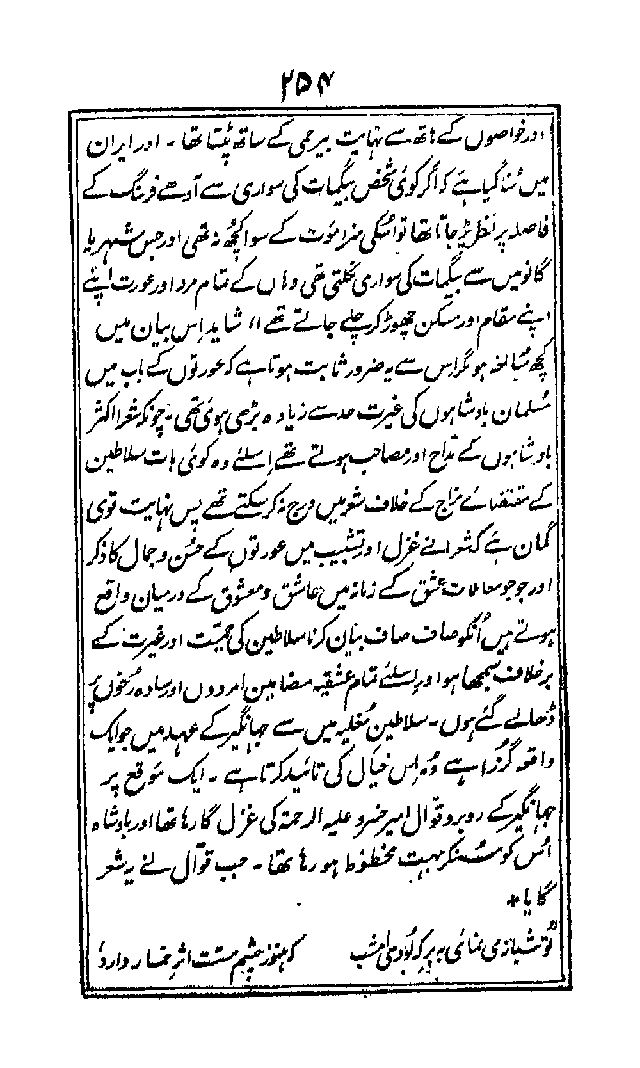 ۲۵۴
اور خواصوں کے ہاتھ سے نہایت بیرحمی کے ساتھ پٹتا تھا - اور ایران
میں سُنا گیا ہے کہ اگر کوئی شخص بیگمات کی سواری سے آدھے فرسنگ کے
فاصلہ پر نظر پڑجاتا تھا تو اُسکی سزا موت کے سوا کچھ نہ تھی اور جس شہر یا
گانو میں سے بیگمات کی سواری نکلتی تھی وہاں کے تمام مرد اور عورت اپنے
اپنے مقام اور مسکن چھوڑ کر چلے جاتے تھے ،، شاید اِس بیان میں
کچھ مُبالغہ ہو مگر اس سے یہ ضرور ثابت ہوتا ہے کہ عورتوں کے باب میں
مُسلمان بادشاہوں کی غیرت حد سے زیادہ بڑھی ہوئی تھی - چونکہ شعرا اکثر
بادشاہوں کے مدّاح اور مصاحب ہوتے تھے اِسلئے وہ کوئی بات سلاطین
کے مقتضائے مزاج کے خلاف شعر میں درج نہ کرسکتے تھے پس نہایت قوی
گمان ہے کہ شعرا نے غزل اور تشبیب میں عورتوں کے حُسن و جمال کا ذکر
اور جو جو معاملات عشق کے زمانہ میں عاشق و معشوق کے درمیان واقع
ہوتے ہیں اُنکو صاف صاف بیان کرنا سلاطین کی حمیّت اور غیرت کے
برخلاف سمجھا ہو اور اِسلئے تمام عشقیہ مضامین امردوں اور سادہ رُخوں پر
ڈھالے گئے ہوں - سلاطین مُغلیہ میں سے جہانگیر کے عہد میں جو ایک
واقعہ گُزرا ہے وُہ اِس خیال کی تائید کرتا ہے - ایک موقع پر
جہانگیر کے روبرو قوّال امیر خسرو علیہ الرحمۃ کی غزل گا رہا تھا اور بادشاہ
اُس کو سُنکر بہت محظوظ ہو رہا تھا - جب قوّال نے یہ شعر
گایا +
تو شبانہ می نمائی بہ برِ کہ بُودی امشب کہ ہنوز چشمِ مستت اثرِ خمار دارد